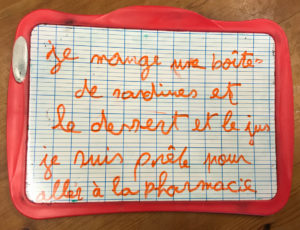 je mange une boîte
de sardines et
le dessert et le jus
je suis prête pour
aller à la pharmacie